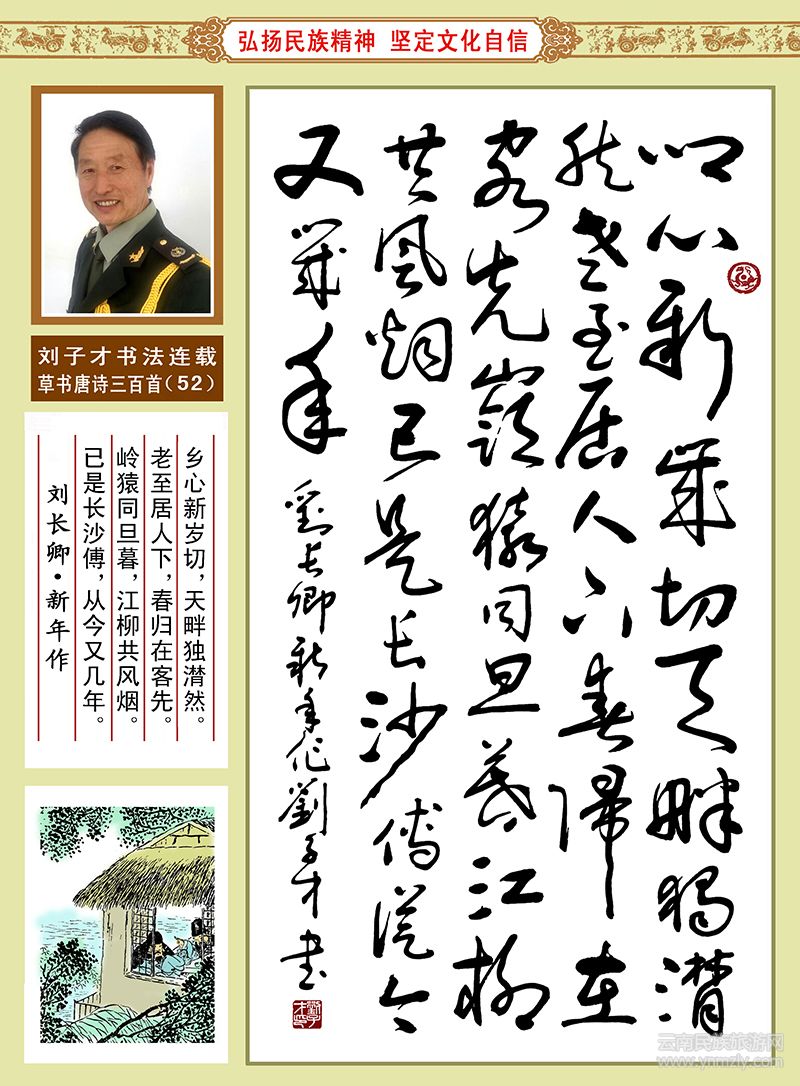 弘扬民族精神 坚定文化自信
刘子才书法连载
草书唐诗三百首（52）
乡心新岁切，天畔独潸然。
老至居人下，春归在客先。
岭猿同旦暮，江柳共风烟。
已是长沙傅，从今又几年。
刘长卿·新年作
鄉心新歲切天畔獨潸
然老至居人下春歸在
客先嶺猿同旦暮江柳
共風烟已是長沙傅從今
又幾年 劉長卿新年作劉子才書
云南民族旅游网
www.ynmzly.com